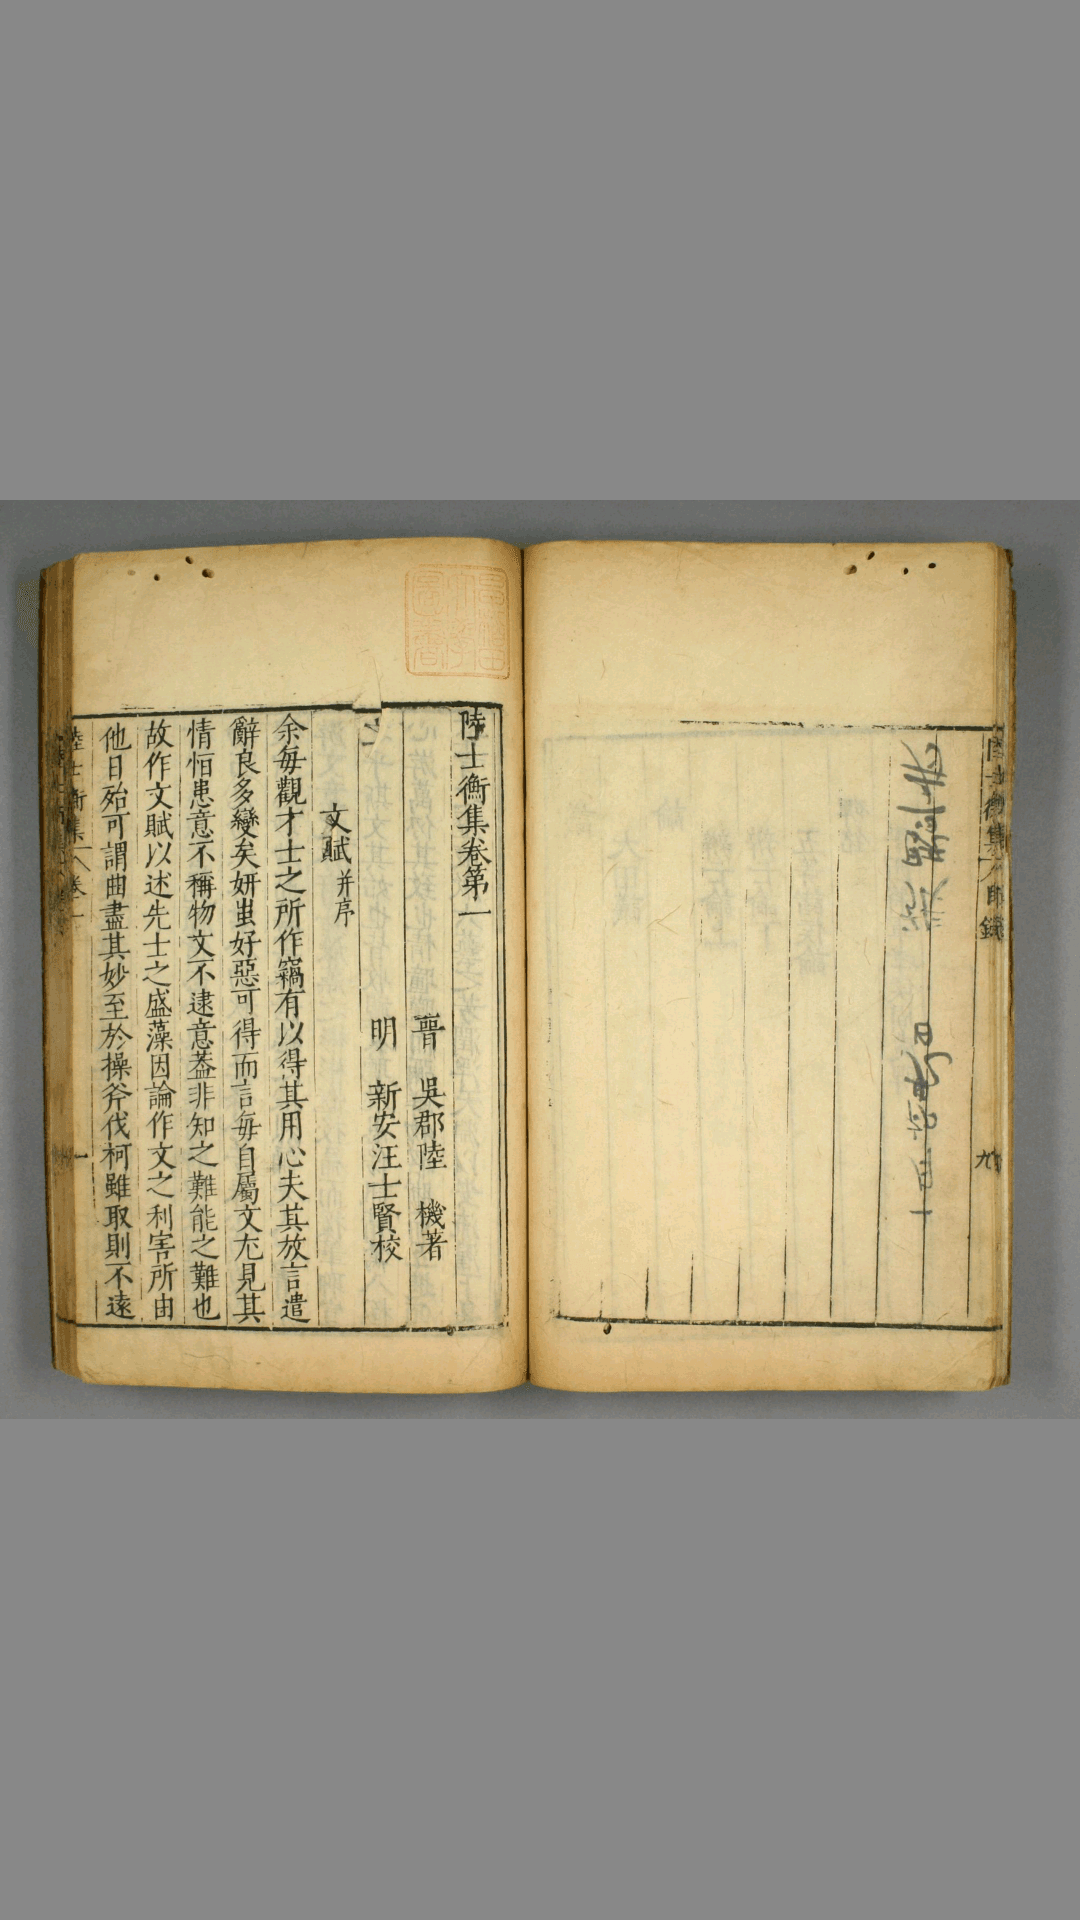 陸士衡集
九
陸士衡集卷第一
晉 吳郡陸 機著
明 新安汪士賢校
文賦并序
余每觀才士之所作竊有以得其用心夫其放言遣
辭良多變矣妍蚩好惡可得而言每自屬文尤見其
情恒患意不稱物文不逮意葢非知之難能之難也
故作文賦以述先士之盛藻因論作文之利害所由
他日殆可謂曲盡其妙至於操斧伐柯雖取則不遠
陸士衡集 卷一
一